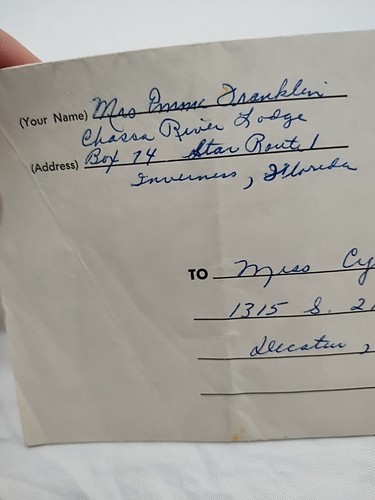 (Your Name) Mrs Franklin
Chassa River Lodge
(Address) Box 74 Star Route 1
Inverness, Florida
TO Miss Cy
1315 S. 21
Decatur,